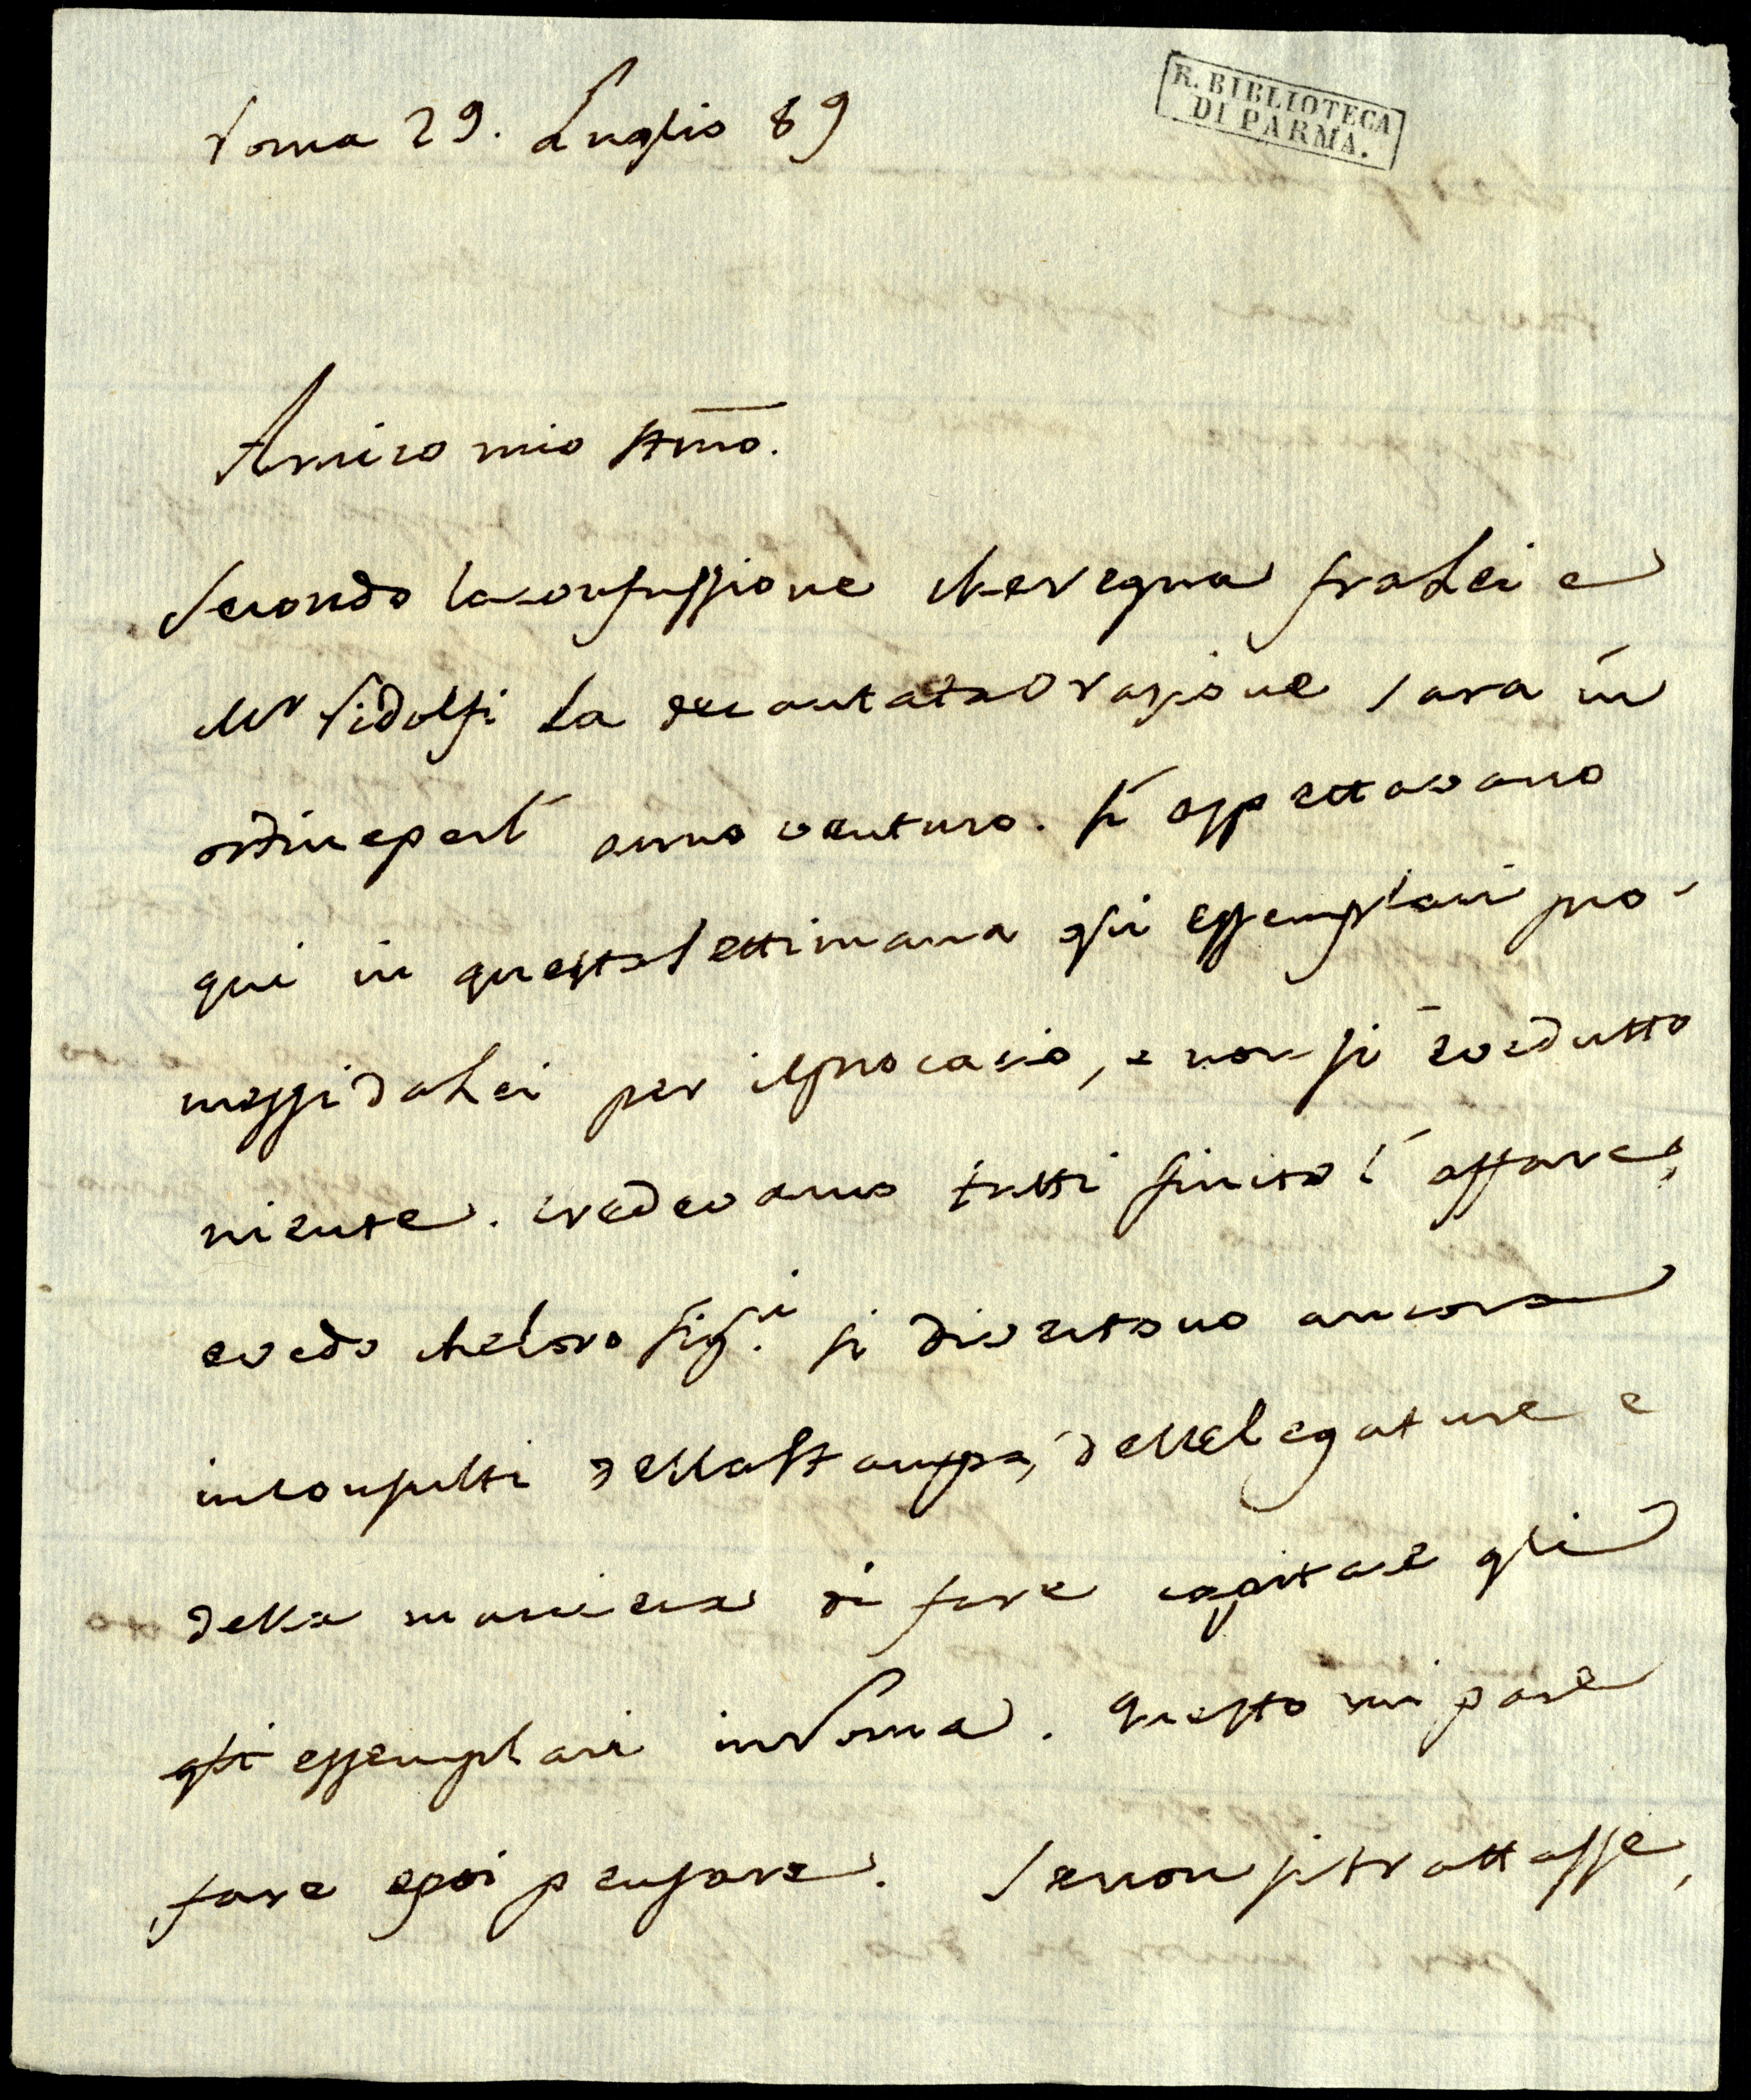 Roma 29. Luglio 89
R. BIBLIOTECA
DI PARMA.
Amico mio Stimo.
Secondo la confussione che regna fra Lei e
Mr Ridolfi La decantata Orazione sara in
ordine per l' anno venturo. Si aspettavano
qui in questa settimana gli essemplari pro-
messi da Lei per il Procacio, e non si è vedutto
niente. Credevamo tutti finito l' affare,
e vedo che loro Sig.ri si divertono ancora
in consulti della Stampa, delle legature e
della maniera di fare capitare gli
gli essemplari in Roma. Questo mi pare
fare e poi pensare. Se non si trattasse,